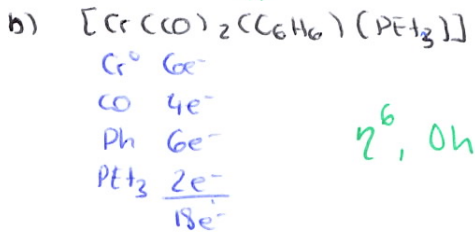 b) [Cr (CO)2(C6H6)(PEt3)]
Cr⁰ 6e⁻
CO 4e⁻
Ph 6e⁻ η⁶, Oh
PEt3 2e⁻
18e⁻